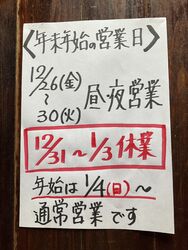 〈年末年始の営業日〉
12/26(金)
〜
30(火)
昼・夜営業
12/31〜1/3休業
年始は1/4(日)〜
通常営業です